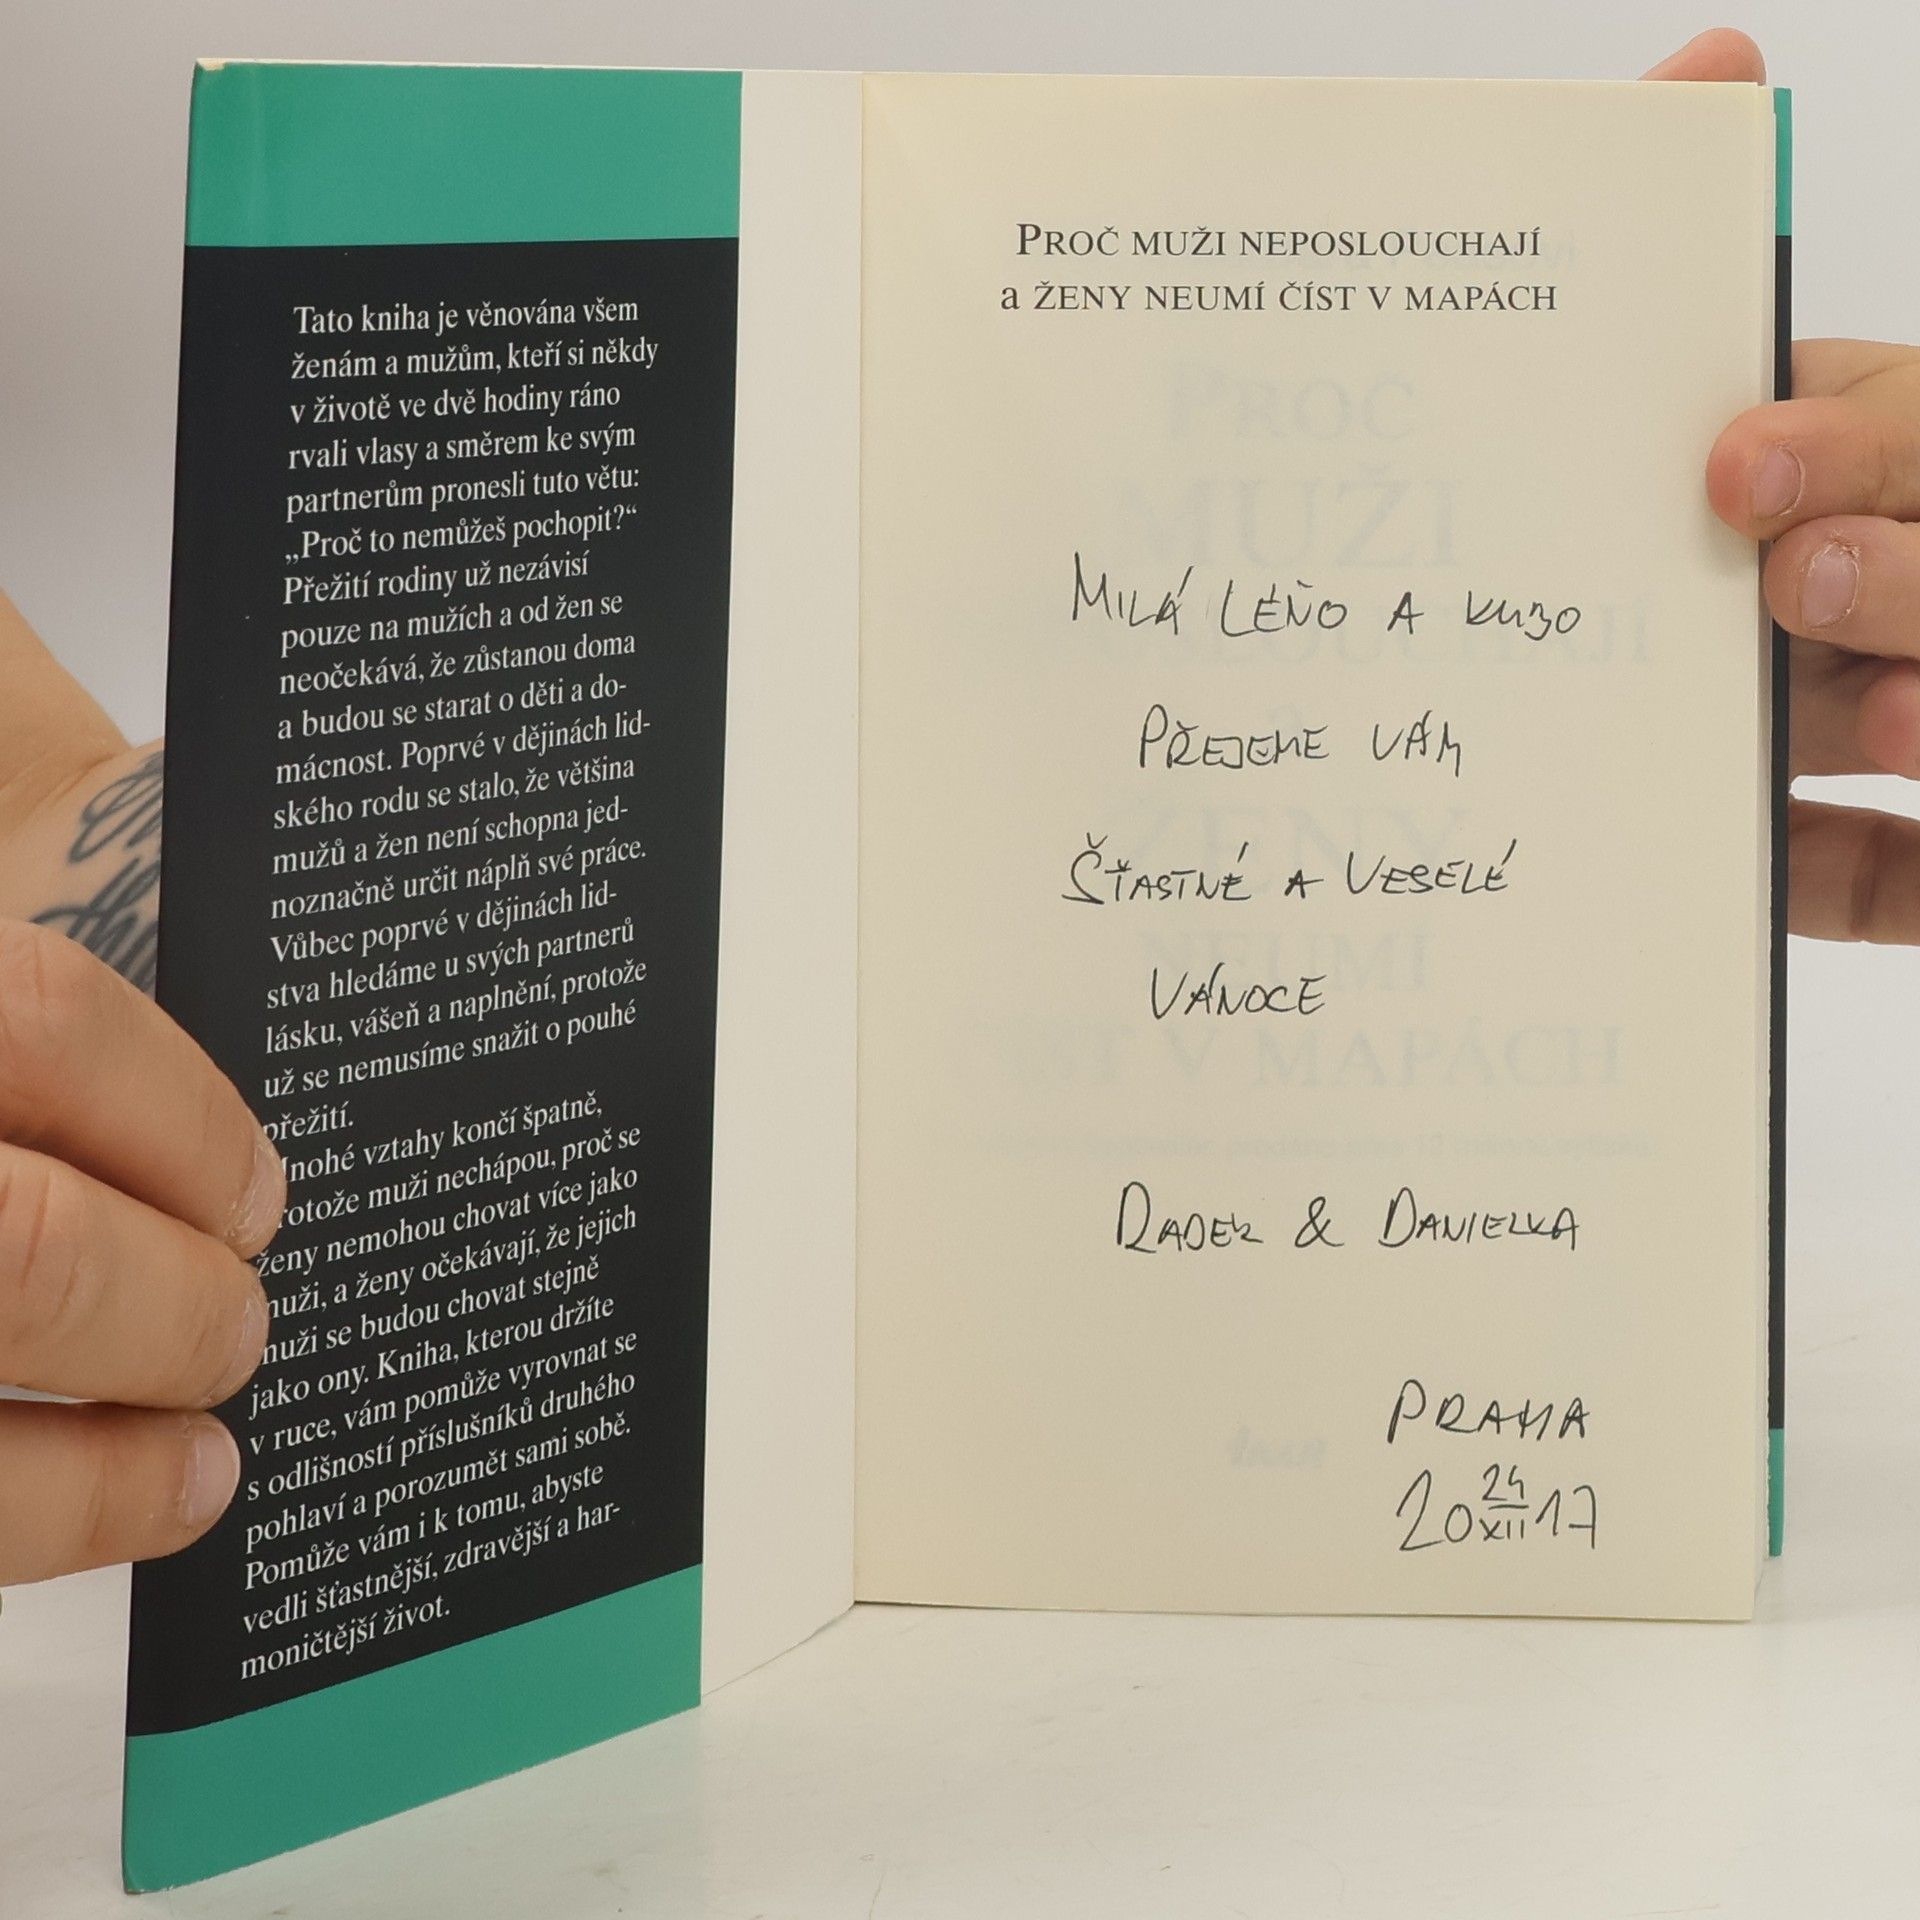 Tato kniha je věnována všem
ženám a mužům, kteří si někdy
v životě ve dvě hodiny ráno
rvali vlasy a směrem ke svým
partnerům pronesli tuto větu:
„Proč to nemůžeš pochopit?“
Přežití rodiny už nezávisí
pouze na mužích a od žen se
neočekává, že zůstanou doma
a budou se starat o děti a do-
mácnost. Poprvé v dějinách lid-
ského rodu se stalo, že většina
mužů a žen není schopna jed-
noznačně určit náplň své práce.
Vůbec poprvé v dějinách lid-
stva hledáme u svých partnerů
lásku, vášeň a naplnění, protože
už se nemusíme snažit o pouhé
přežití.
nohé vztahy končí špatně,
rotože muži nechápou, proč se
ženy nemohou chovat více jako
muži, a ženy očekávají, že jejich
muži se budou chovat stejně
jako ony. Kniha, kterou držíte
v ruce, vám pomůže vyrovnat se
s odlišností příslušníků druhého
pohlaví a porozumět sami sobě.
Pomůže vám i k tomu, abyste
vedli šťastnější, zdravější a har-
moničtější život.
PROČ MUŽI NEPOSLOUCHAJÍ
a ŽENY NEUMÍ ČÍST V MAPÁCH
MILÁ LÉŇO A KUBO
PŘEJEME VÁM
ŠŤASTNÉ A VESELÉ
VÁNOCE
RADEK & DANIELKA
PRAHA
20 24/XII 17